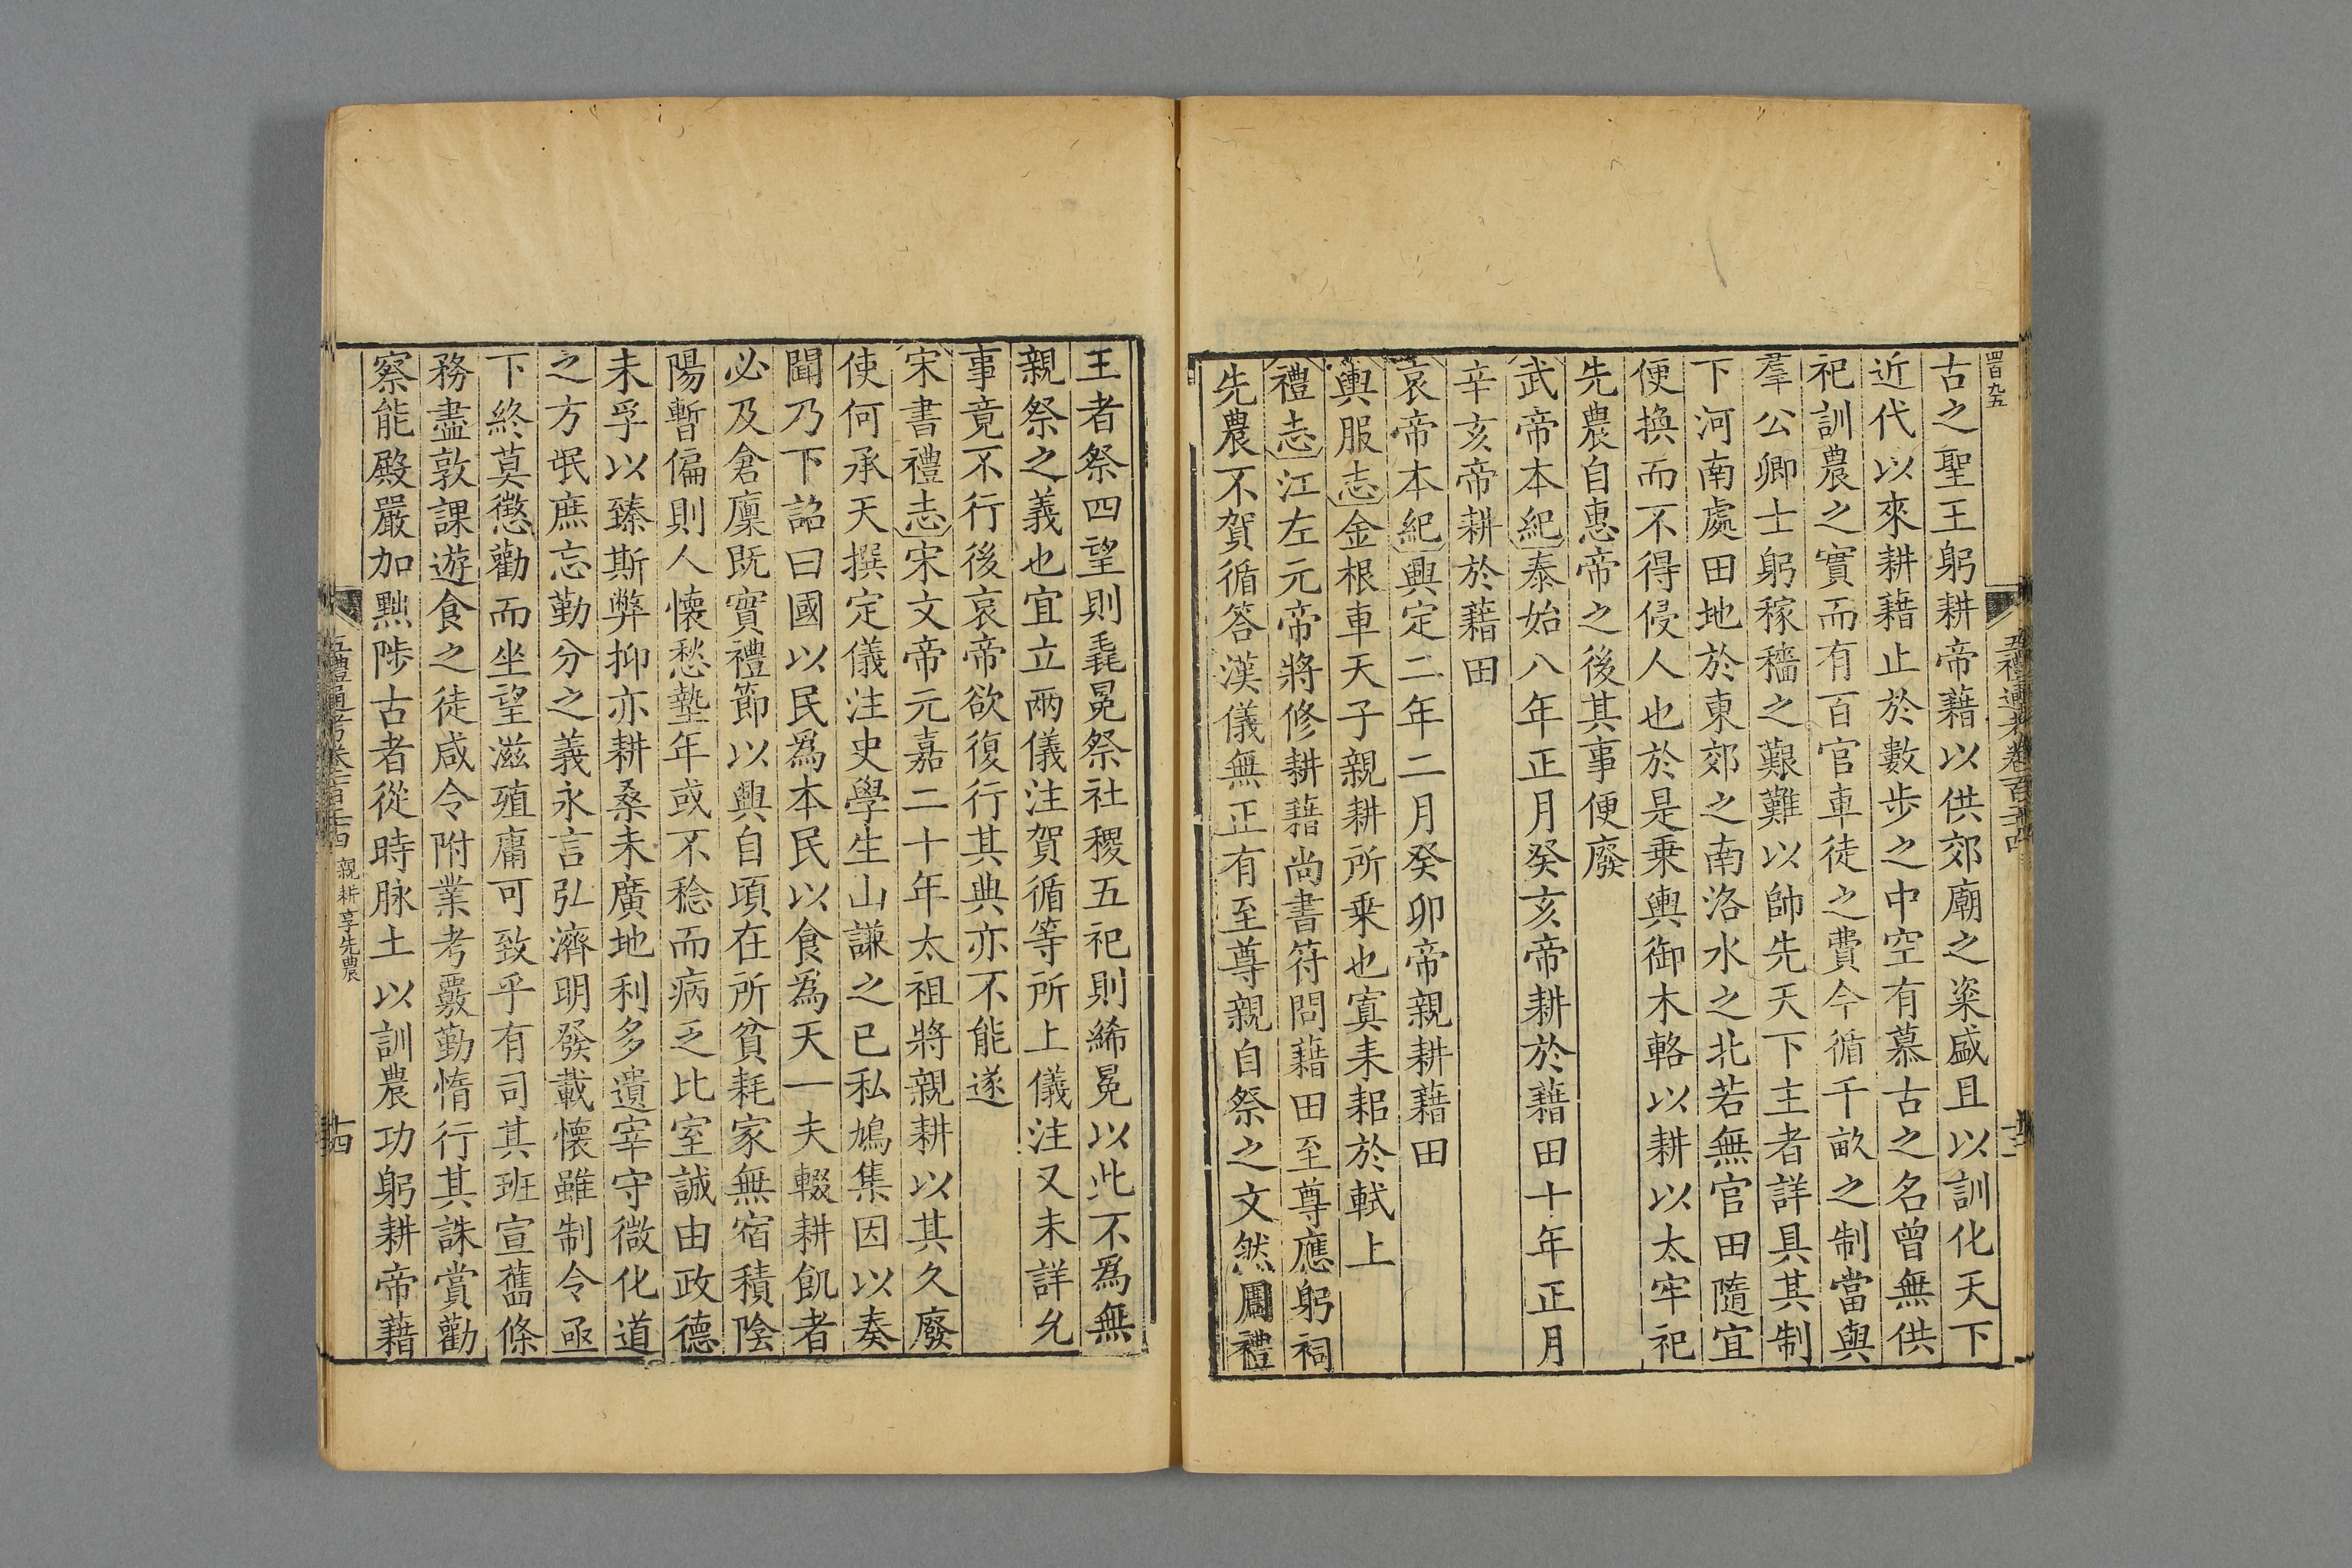 四百九五
五禮通考卷一百二十四
十三
古之聖王躬耕帝藉以供郊廟之粢盛且以訓化天下
近代以來耕藉止於數步之中空有慕古之名曾無供
祀訓農之實而有百官車徒之費今循千畝之制當與
羣公卿士躬稼穡之艱難以帥先天下主者詳具其制
下河南處田地於東郊之南洛水之北若無官田隨宜
便換而不得侵人也於是乗輿御木輅以耕以太牢祀
先農自惠帝之後其事便廢
武帝本紀泰始八年正月癸亥帝耕於藉田十年正月
辛亥帝耕於藉田
哀帝本紀興定二年二月癸卯帝親耕藉田
輿服志金根車天子親耕所乗也寘耒耜於軾上
禮志江左元帝將修耕藉尚書符問藉田至尊應躬祠
先農不賀循答漢儀無正有至尊親自祭之文然周禮
王者祭四望則毳冕祭社稷五祀則絺冕以此不爲無
親祭之義也宜立兩儀注賀循等所上儀注又未詳允
事竟不行後哀帝欲復行其典亦不能遂
宋書禮志宋文帝元嘉二十年太祖將親耕以其久廢
使何承天撰定儀注史學生山謙之已私鳩集因以奏
聞乃下詔曰國以民爲本民以食爲天一夫輟耕飢者
必及倉廩既實禮節以興自頃在所貧耗家無宿積陰
陽暫偏則人懷愁墊年或不稔而病乏比室誠由政德
未孚以臻斯弊抑亦耕桑未廣地利多遺宰守微化道
之方氓庶忘勤分之義永言弘濟明發載懷雖制令亟
下終莫懲勸而坐望滋殖庸可致乎有司其班宣舊條
務盡敦課遊食之徒咸令附業考覈勤惰行其誅賞勸
察能殿嚴加黜陟古者從時脉土以訓農功躬耕帝藉
五禮通考卷一百二十四 親耕享先農
十四